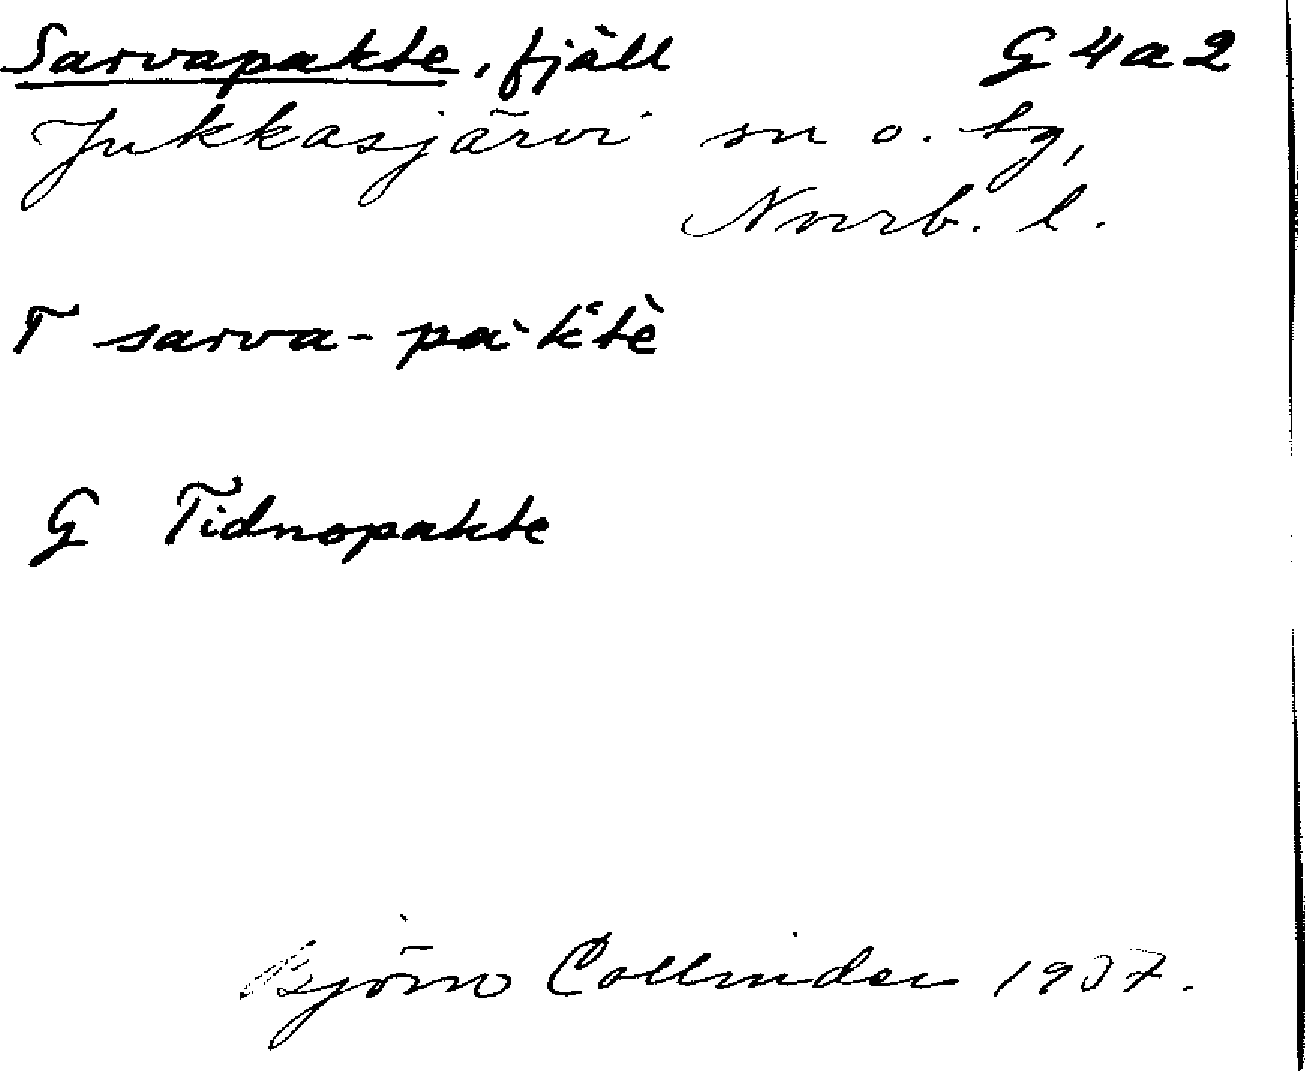 Sarvapakte, fjäll G 4 a 2
Jukkasjärvi sn o. tg,
Norrb. l.
T sarva-pàkˊtè
G Tidnopakte
Björn Collinder 1937.